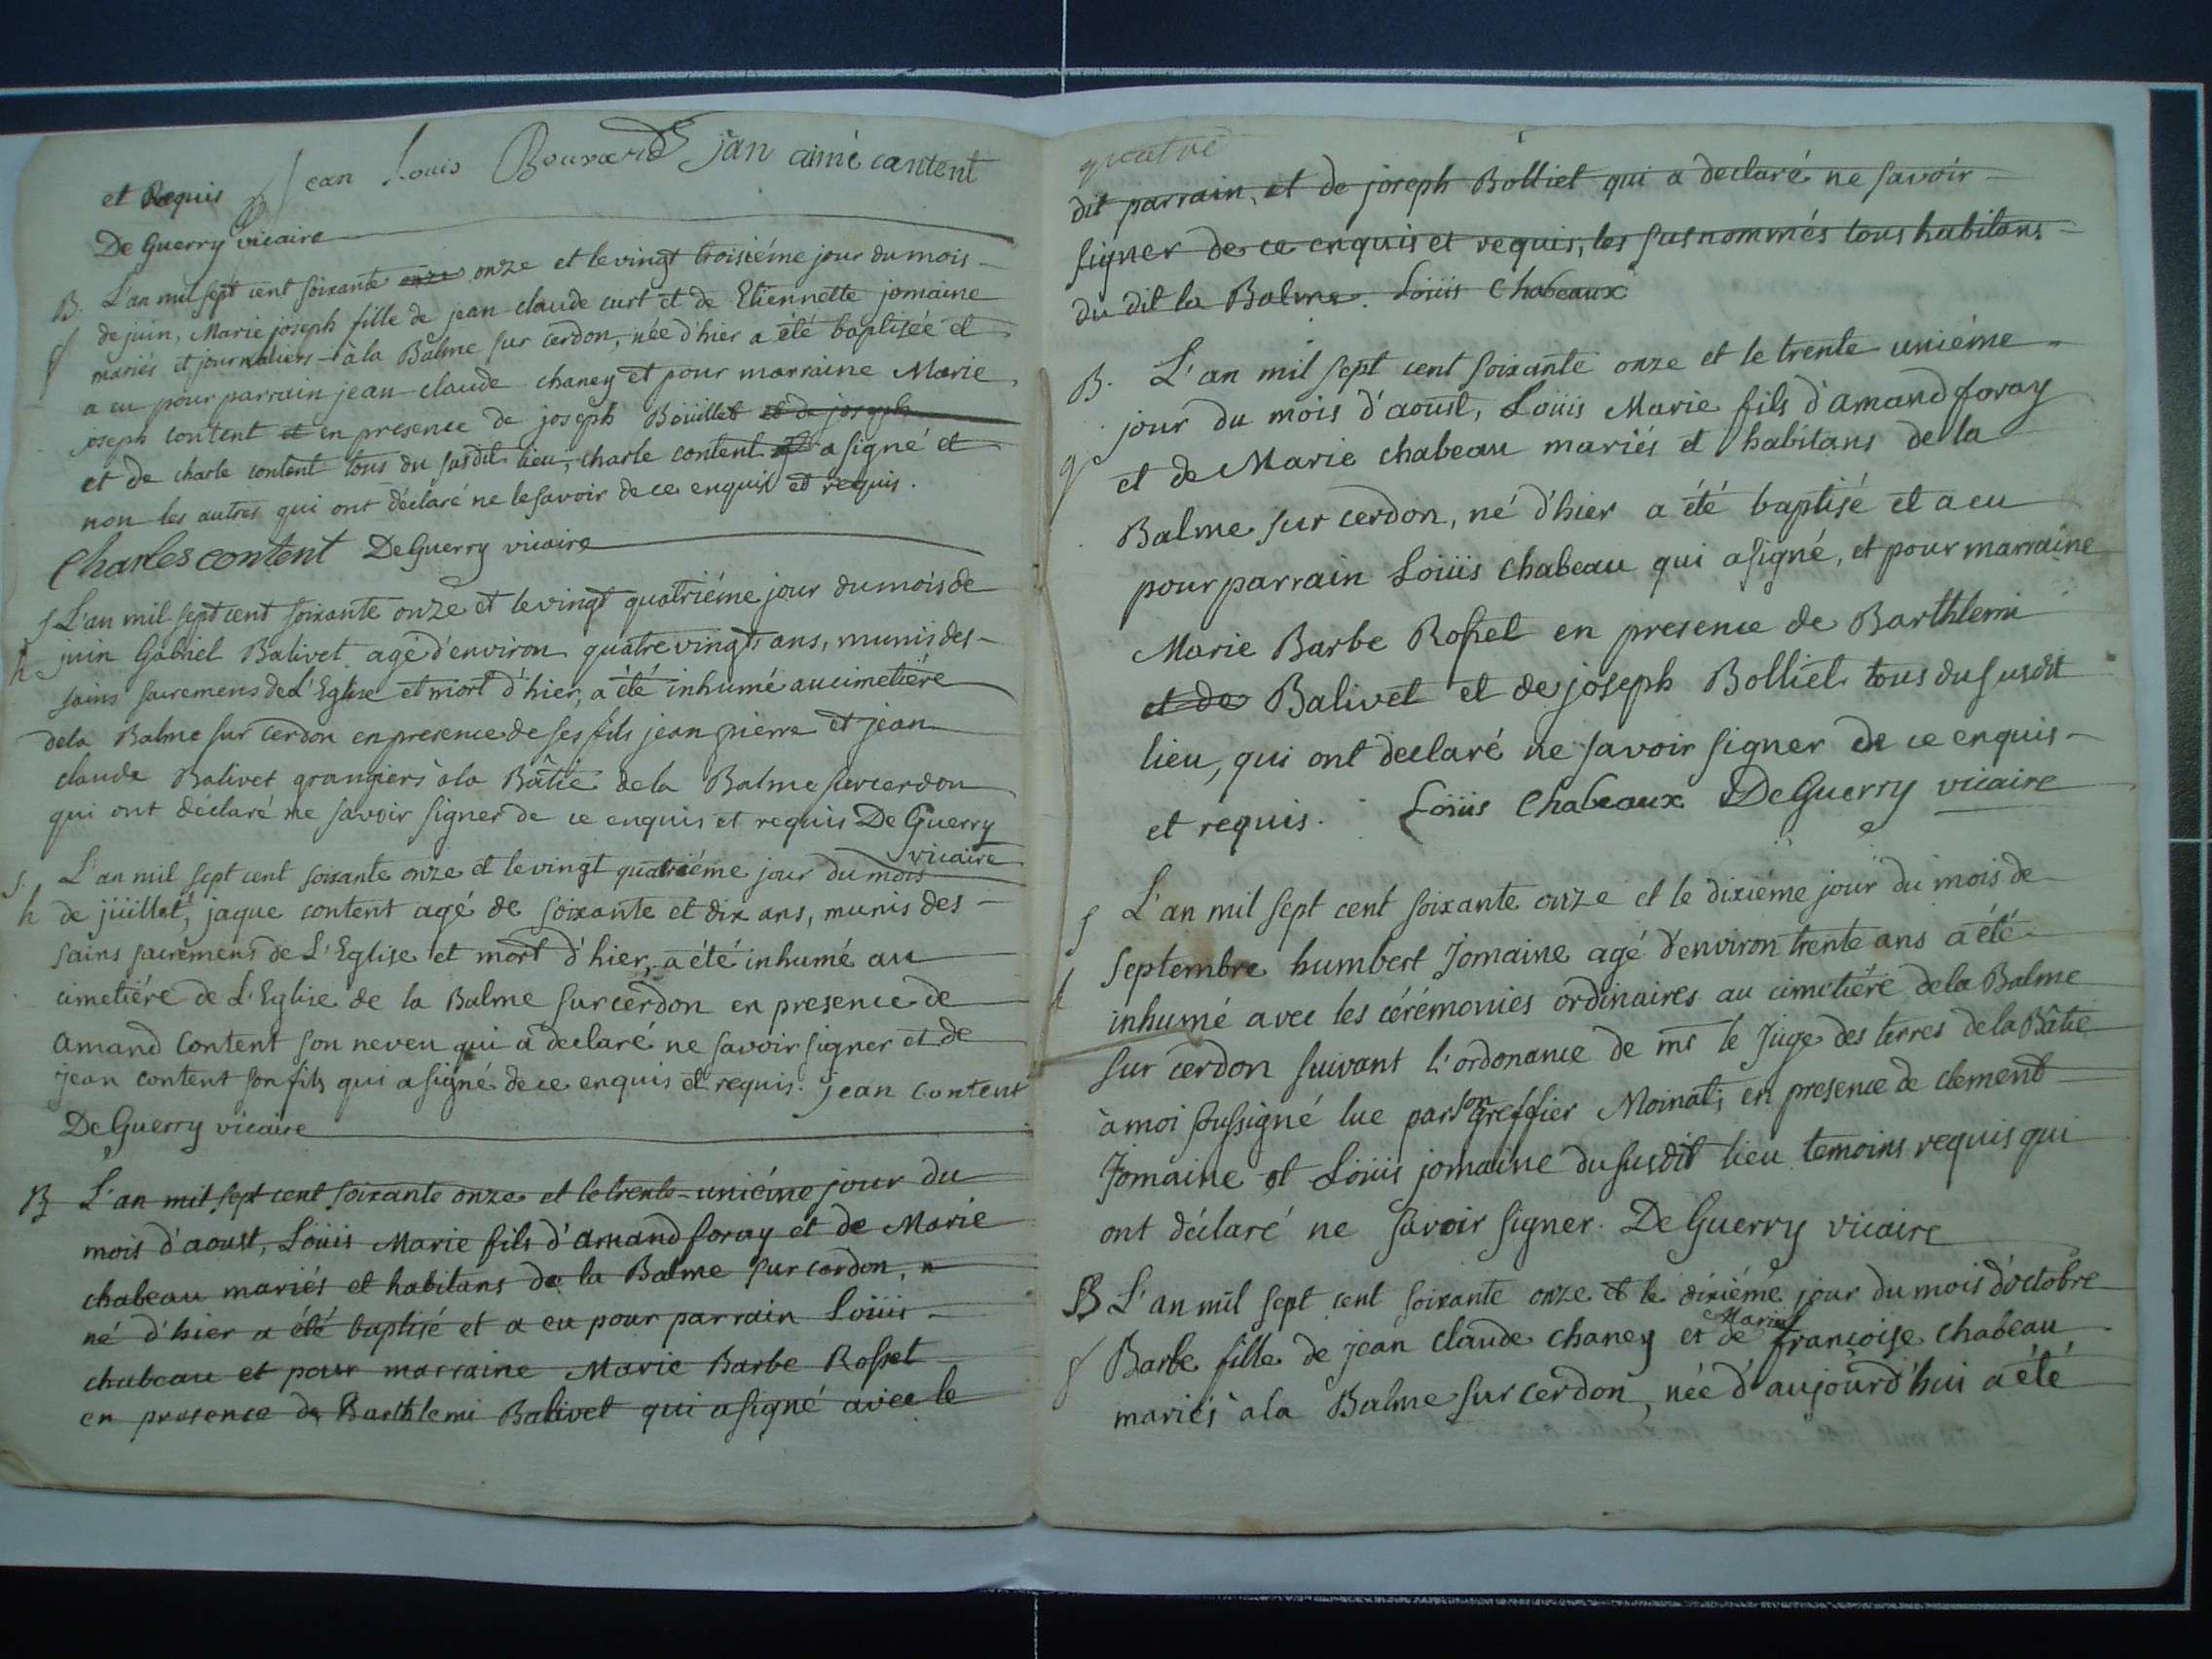 et Requis Jean Louis Bouvard jan aimé cantent
De Guerry vicaire
B. L'an mil sept cent soixante onze onze et le vingt troisiéme jour du mois
f de juin, Marie joseph fille de jean claude curt et de Etiennette jomaine
mariés et journaliers à la Balme sur cerdon, née d'hier a été baptisée et
a eu pour parrain jean claude chaney et pour marraine Marie
joseph content et en presence de joseph Boüillet et de joseph
et de charle content tous du susdit lieu, charle content a signé et
non les autres qui ont déclaré ne le savoir de ce enquis et requis.
Charles content De Guerry vicaire
S L'an mil sept cent soixante onze et le vingt quatriéme jour du mois de
h juin Gabriel Balivet agé d'environ quatre vingts ans, munis des
sains sacremens de L'Eglise et mort d'hier, a été inhumé au cimetiére
de la Balme sur Cerdon en presence de ses fils jean pierre et jean
claude Balivet grangiers à la Bâtie de la Balme sur cerdon
qui ont déclaré ne savoir signer de ce enquis et requis De Guerry
vicaire
S. L'an mil sept cent soixante onze et le vingt quatriéme jour du mois
h de jüillet, jaque content agé de soixante et dix ans, munis des
sains sacremens de L'Eglise et mort d'hier, a été inhumé au
cimetiére de L'Eglise de la Balme sur cerdon en presence de
Amand Content son neveu qui a declaré ne savoir signer et de
jean content son fils qui a signé de ce enquis et requis. jean content
De Guerry vicaire
B L'an mil sept cent soixante onze et le trente-uniéme jour du
mois d'aoust, Loüis Marie fils d'amand foray et de Marie
chabeau mariés et habitans de la Balme sur cerdon, n
né d'hier a été baptisé et a eu pour parrain Loüis
chabeau et pour marraine Marie Barbe Rosset
en presence de Barthlemi Balivet qui a signé avec le
quatre
dit parrain, et de joseph Bolliet qui a declaré ne savoir
signer de ce enquis et requis, les susnommés tous habitans
du dit la Balme. Loüis Chabeaux
B. L'an mil sept cent soixante onze et le trente uniéme
jour du mois d'aoust, Loüis Marie fils d'amand foray
g et de Marie chabeau mariés et habitans de la
Balme sur cerdon, né d'hier a été baptisé et a eu
pour parrain Loüis chabeau qui a signé, et pour marraine
Marie Barbe Rosset en presence de Barthlemi
et de Balivet et de joseph Bolliet tous du susdit
lieu, qui ont declaré ne savoir signer de ce enquis
et requis. Loüis Chabeaux De Guerry vicaire
S L'an mil sept cent soixante onze et le dixiéme jour du mois de
septembre humbert Jomaine agé d'environ trente ans a été
h inhumé avec les cérémonies ordinaires au cimetiére de la Balme
sur cerdon suivant l'ordonance de mr le Juge des terres de la Bâtie
à moi soussigné lue par son greffier Moinat, en presence de clement
Jomaine et Loüis jomaine du susdit lieu temoins requis qui
ont déclaré ne savoir signer. De Guerry vicaire
B L'an mil sept cent soixante onze et le dixiéme jour du mois d'octobre
f Barbe fille de jean claude chaney et de Marie françoise chabeau
mariés à la Balme sur cerdon, née d'aujourd'hui a été